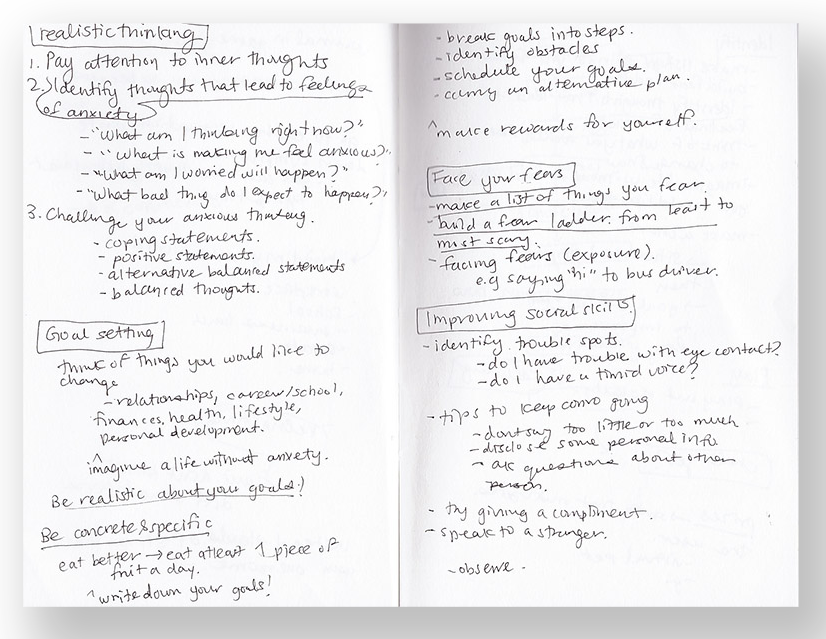 realistic thinking
1. Pay attention to inner thoughts
2. Identify thoughts that lead to feelings
of anxiety
- "What am I thinking right now?"
- "What is making me feel anxious?"
- "What am I worried will happen?"
- "What bad thing do I expect to happen?"
3. Challenge your anxious thinking.
- coping statements.
- positive statements.
- alternative balanced statements
- balanced thoughts.
Goal setting
think of things you would like to
change
- relationships, career/school,
finances, health, lifestyle,
personal development.
^
imagine a life without anxiety.
Be realistic about your goals!
Be concrete & specific
eat better → eat atleast 1 piece of
fruit a day.
^ write down your goals!
- break goals into steps.
- identify obstacles
- schedule your goals.
- carry an alternative plan.
^ make rewards for yourself.
Face your fears
- make a list of things you fear.
- build a fear ladder. from least to
most scary.
- facing fears (exposure).
e.g saying "hi" to bus driver.
Improving social skills
- identify trouble spots.
- do I have trouble with eye contact?
- do I have a timid voice?
- tips to keep convo going
- dont say too little or too much
- disclose some personal info
- ask questions about other
person.
- try giving a compliment.
- speak to a stranger.
- observe -